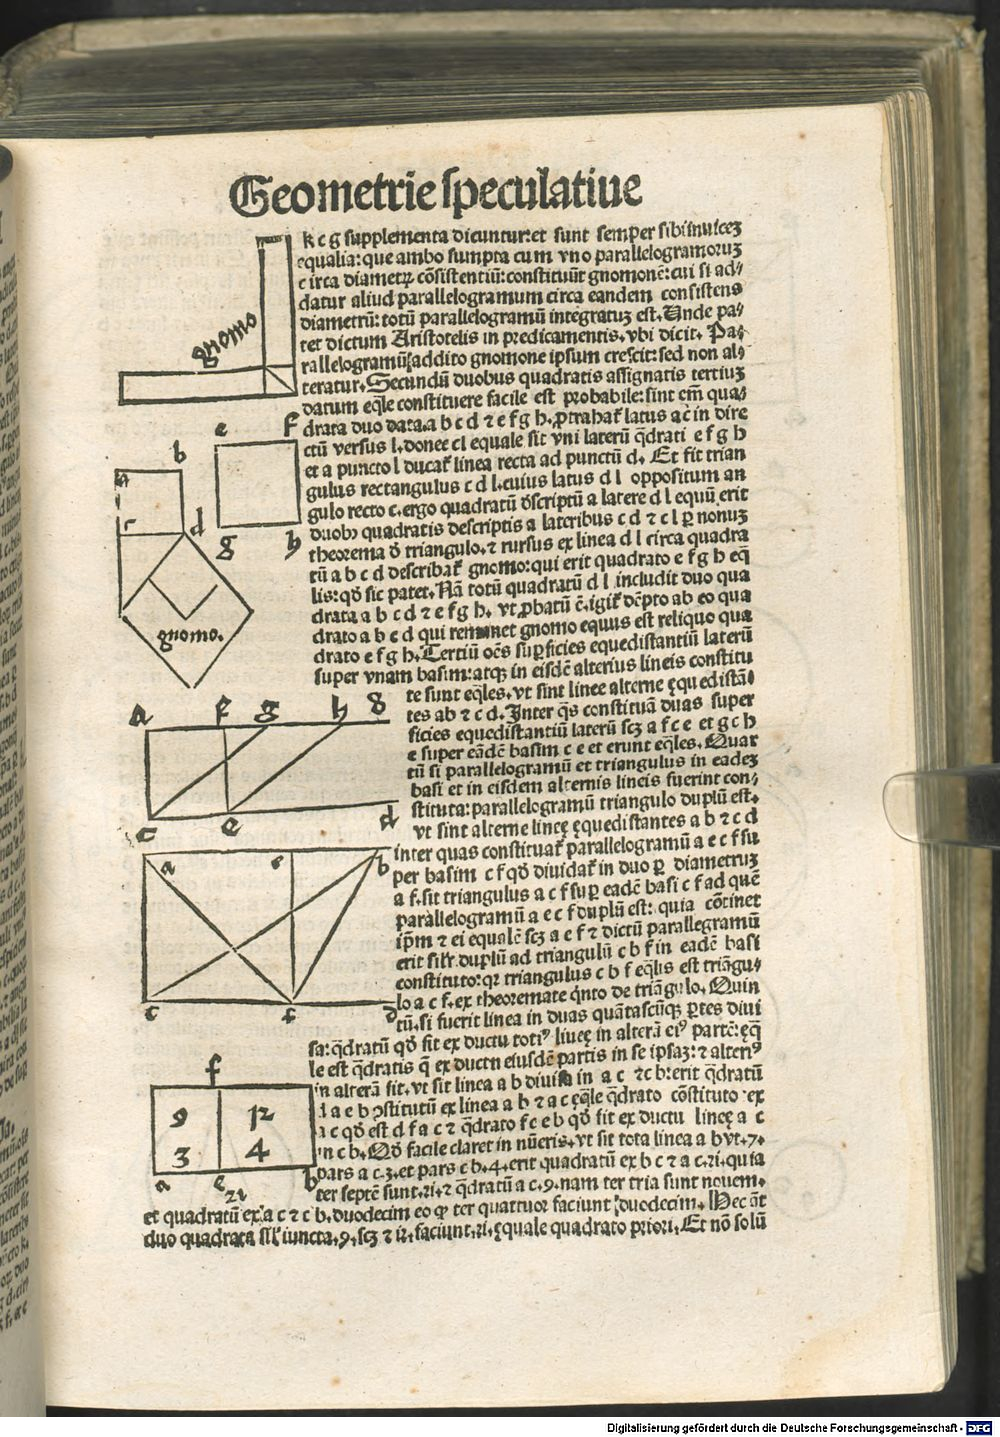 Geometrie speculatiue
k c g supplementa dicuntur: et sunt semper sibiinuicez
equalia: que ambo sumpta cum vno parallelogramoruz
circa diametrꝝ cōsistentiū: constituūt gnomonē: cui si ad⸗
datur aliud parallelogramum circa eandem consistens
diametrū: totū parallelogramū integratuz est. Unde pa⸗
tet dictum Aristotelis in predicamentis. vbi dicit. Pa⸗
rallelogramū addito gnomone ipsum crescit: sed non al⸗
teratur. Secundū duobus quadratis assignatis tertiuz
datum eq̄le constituere facile est probabile: sint em̄ qua⸗
drata duo data. a b c d ⁊ e f g h. ꝓtrahat̄ latus ac̄ in dire
ctū versus l. donec cl equale sit vni laterū q̄drati e f g h
et a puncto l ducat̄ linea recta ad punctū d. Et fit trian
gulus rectangulus c d l. cuius latus d l oppositum an
gulo recto c. ergo quadratū d̄scriptū a latere d l equū erit
duobꝰ quadratis descriptis a lateribus c d ⁊ c l ꝑ nonuz
theorema d̄ triangulo. ⁊ rursus ex linea d l circa quadra
tū a b c d describat̄ gnomo: qui erit quadrato e f g h eq̄
lis: qd̄ sic patet. Nā totū quadratū d l includit duo qua
drata a b c d ⁊ e f g h. vt ꝓbatū ē. igit̄ dēpto ab eo qua
drato a b c d qui remanet gnomo equus est reliquo qua
drato e f g h. Tertiū oēs suꝑficies equedistantiū laterū
super vnam basim: atqꝫ in eisdē alterius lineis constitu
te sunt eq̄les. vt sint linee alterne ęquedistā⸗
tes ab ⁊ c d. Inter q̄s constituā duas super
ficies equedistantiū laterū scꝫ a f c e et g c h
e super eādē basim c e et erunt eq̄les. Quar
tū si parallelogramū et triangulus in eadez
basi et in eisdem alternis lineis fuerint con⸗
stituta: parallelogramū triangulo duplū est.
vt sint alterne lineę ęquedistantes a b ⁊ c d
inter quas constituat̄ parallelogramū a e c f su
per basim c f qd̄ diuidat̄ in duo ꝑ diametruz
a f. sit triangulus a c f suꝑ eadē basi c f ad quē
parallelogramū a e c f duplū est: quia cōtinet
ip̄m ⁊ ei equalē scꝫ a e f ⁊ dictū parallegramū
erit sil̄r duplū ad triangulū c b f in eadē basi
constituto: qꝛ triangulus c b f eq̄lis est triāgu⸗
lo a c f. ex theoremate q̄nto de triāgulo. Quin
tū. si fuerit linea in duas quātascūqꝫ ꝑtes diui
sa: q̄dratū qd̄ fit ex ductu totiꝰ lineę in alterā eiꝰ partē: ęq̄
le est q̄dratis q̄ ex ductu eiusdē partis in se ipsaz: ⁊ alteriꝰ
in alterā fit. vt sit linea a b diuisa in a c ⁊ c b: erit q̄dratū
d a e b ꝯstitutū ex linea a b ⁊ a c ęq̄le q̄drato cōstituto ex
a c qd̄ est d f a c ⁊ q̄drato f c e b qd̄ fit ex ductu lineę a c
in c b. Qd̄ facile claret in nūeris. vt sit tota linea a b vt. 7.
pars a c. 3. et pars c b. 4. erit quadratū ex b c ⁊ a c. 21. quia
ter septē sunt. 21. ⁊ q̄dratū a c. 9. nam ter tria sunt nouem.
et quadratū ex a c ⁊ c b. duodecim eo ꝙ ter quattuor faciunt duodecim. Hec aūt
duo quadrata sil̄ iuncta. 9. scꝫ ⁊ 12. faciunt. 21. ęquale quadrato priori. Et nō solū
gnomo
e f
b
a
c d
g h
gnomo.
a f g h g
c e d
a e b
c f d
f
9 12
3 4
a c b
21
Digitalisierung gefördert durch die Deutsche Forschungsgemeinschaft - DFG